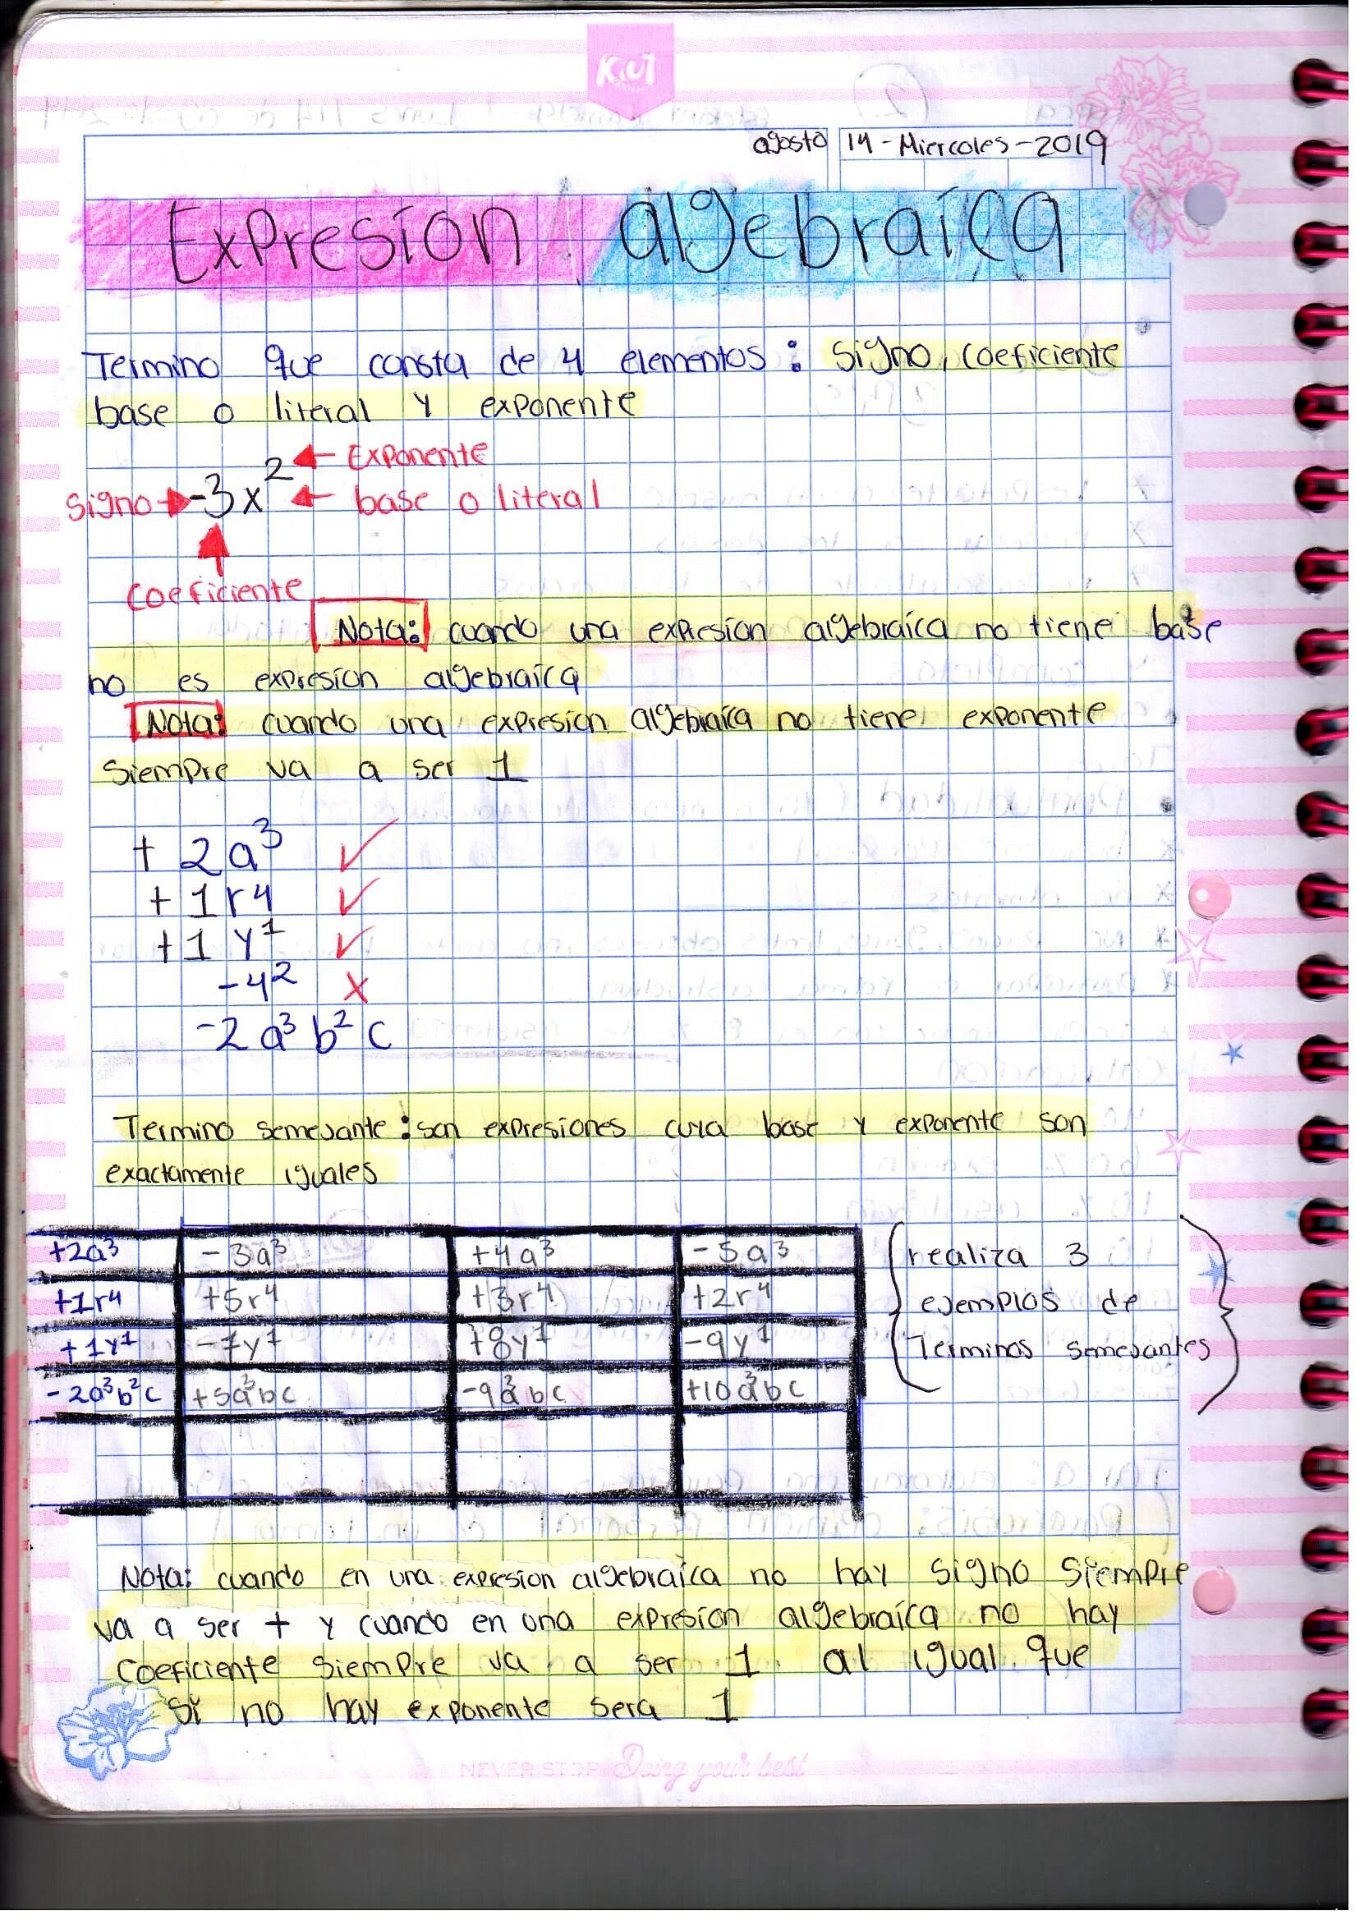 Kiut
agosto 14-Miercoles-2019
Expresion algebraica
Termino que consta de 4 elementos: Signo, coeficiente
base o literal y exponente
Exponente
Signo -3x² base o literal
Coeficiente
Nota: cuando una expresion algebraica no tiene base
no es expresion algebraica
Nota: cuando una expresion algebraica no tiene exponente
siempre va a ser 1
+ 2a³ ✓
+ 1r4 ✓
+1 y¹ ✓
-4² x
-2 a³ b² c
Termino semejante: son expresiones cuya base y exponente son
exactamente iguales
+2a³ -3a³ +4a³ -5a³
+1r4 +5r⁴ +3r⁴ +2r⁴
+1y¹ -7y¹ +8y¹ -9y¹
-2a³b²c +5a³bc -9a³bc +10a³bc
realiza 3
ejemplos de
Terminos semejantes
Nota: cuando en una expresion algebraica no hay signo siempre
va a ser + y cuando en una expresion algebraica no hay
coeficiente siempre va a ser 1 al igual que
si no hay exponente sera 1
NEVER STOP Doing your best